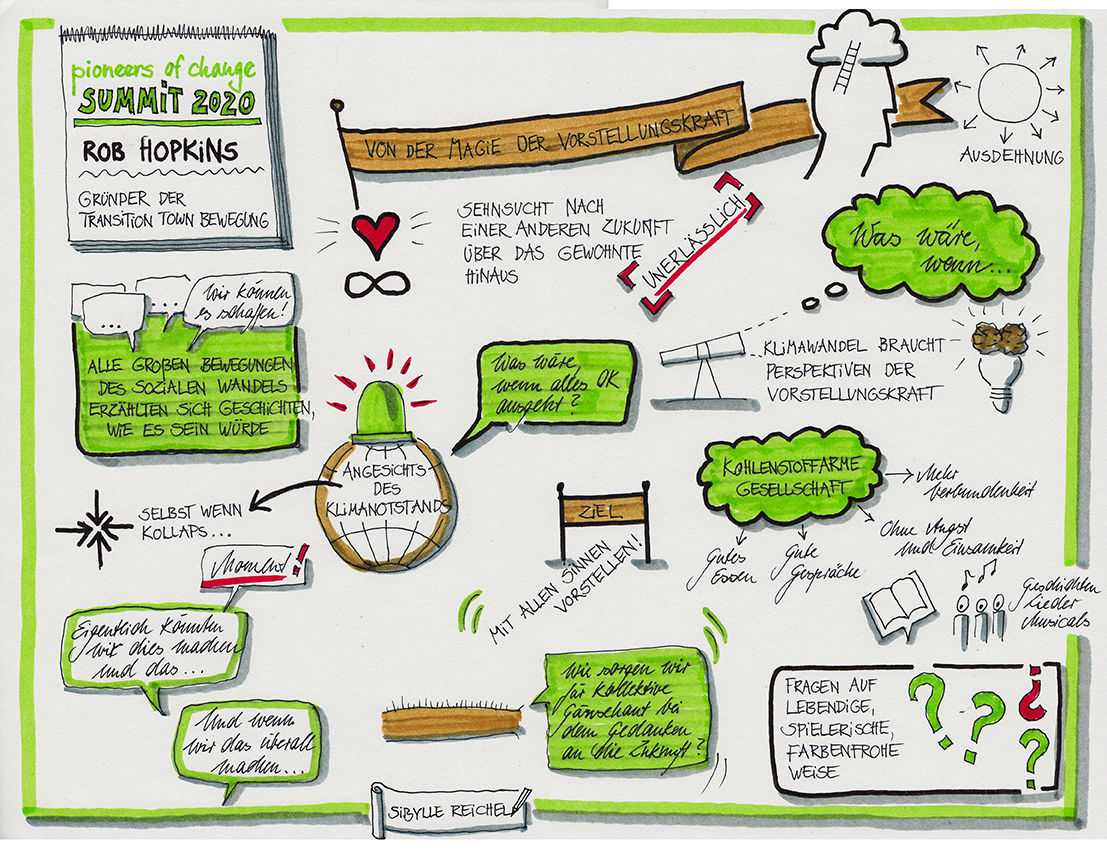 pioneers of change
SUMMIT 2020
ROB HOPKINS
GRÜNDER DER
TRANSITION TOWN BEWEGUNG
VON DER MAGIE DER VORSTELLUNGSKRAFT
AUSDEHNUNG
SEHNSUCHT NACH
EINER ANDEREN ZUKUNFT
ÜBER DAS GEWOHNTE
HINAUS
UNERLÄSSLICH
Was wäre,
wenn...
...
...
Wir können
es schaffen!
ALLE GROßEN BEWEGUNGEN
DES SOZIALEN WANDELS
ERZÄHLTEN SICH GESCHICHTEN,
WIE ES SEIN WÜRDE
Was wäre,
wenn alles OK
ausgeht?
KLIMAWANDEL BRAUCHT
PERSPEKTIVEN DER
VORSTELLUNGSKRAFT
ANGESICHTS
DES
KLIMANOTSTANDS
SELBST WENN
KOLLAPS...
Moment!
Eigentlich könnten
wir dies machen
und das...
Und wenn
wir das überall
machen...
ZIEL
MIT ALLEN SINNEN
VORSTELLEN!
KOHLENSTOFFARME
GESELLSCHAFT
Mehr
Verbundenheit
Ohne Angst
und Einsamkeit
Gute
Gespräche
Gutes
Essen
Geschichten
Lieder
Musicals
Wie sorgen wir
für kollektive
Gänsehaut bei
dem Gedanken
an die Zukunft?
FRAGEN AUF
LEBENDIGE,
SPIELERISCHE,
FARBENFROHE
WEISE
? ? ? ?
SIBYLLE REICHEL